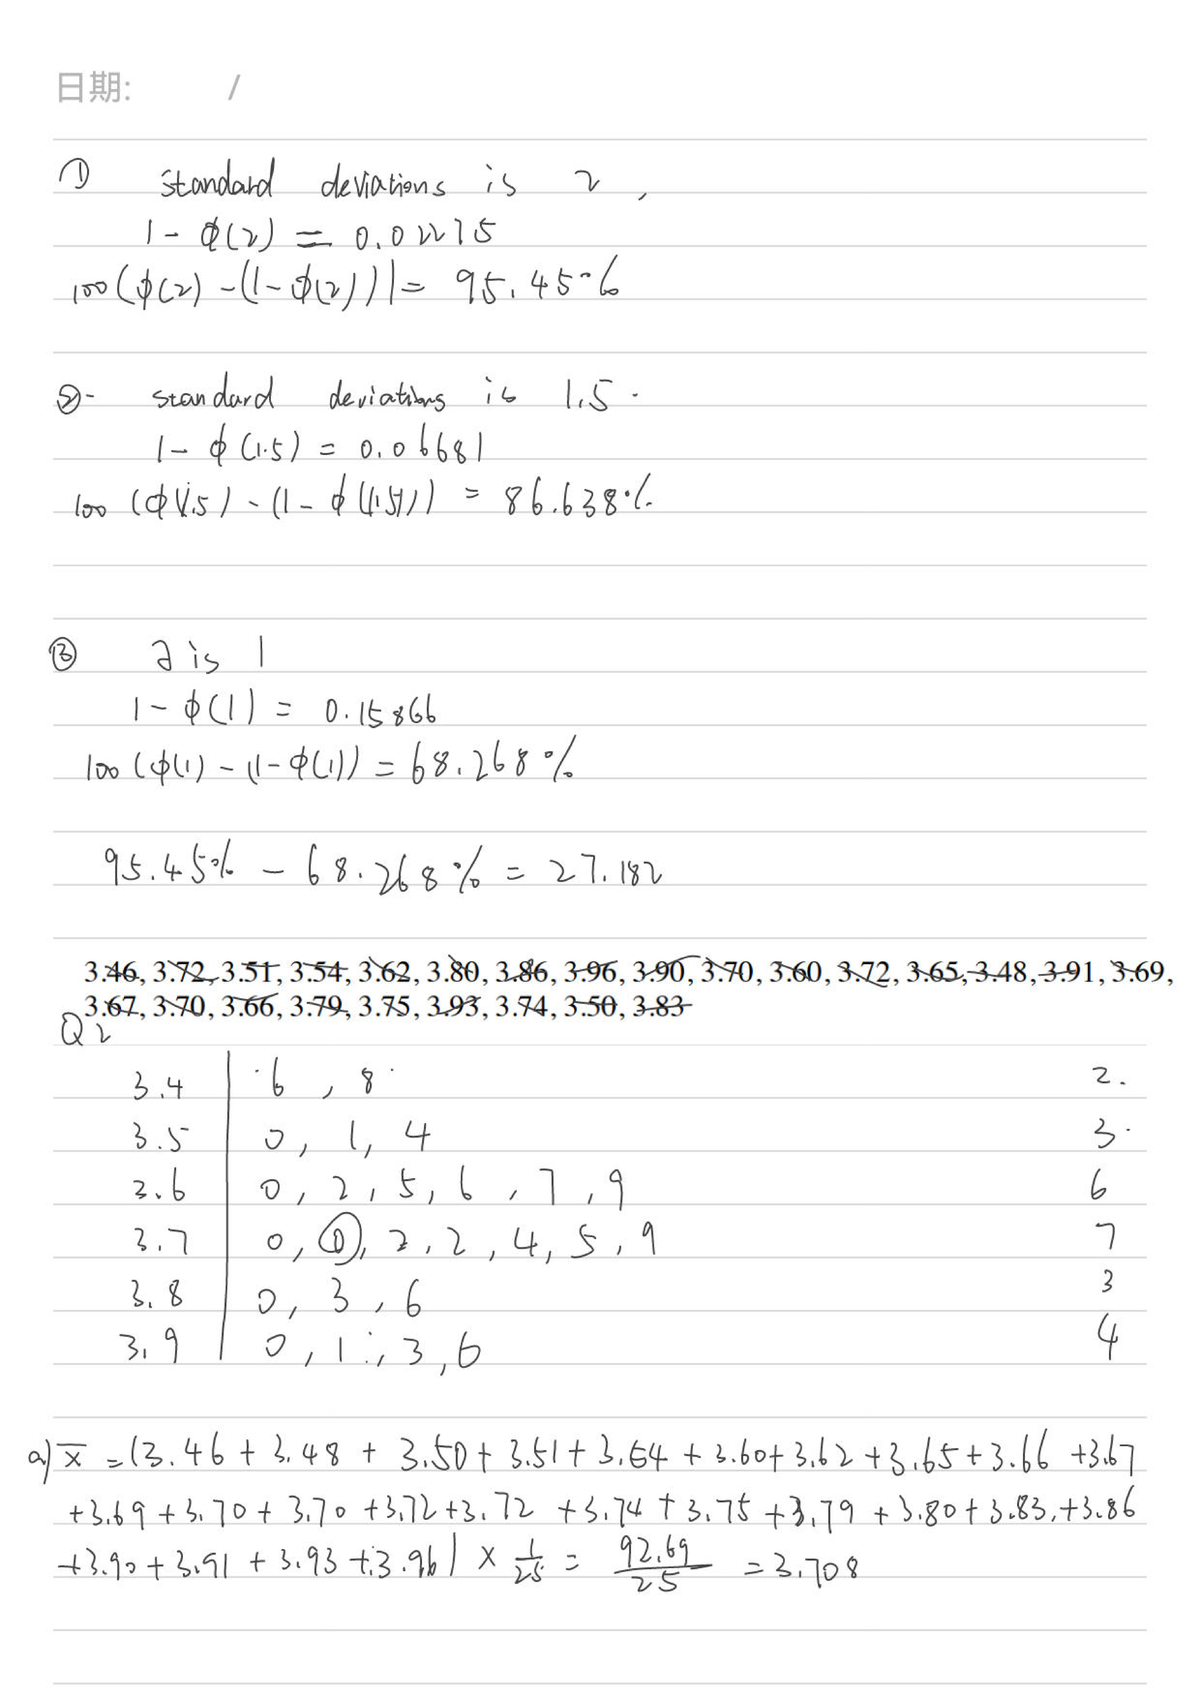 日期: /
① standard deviations is 2,
1 - ϕ(2) = 0.02275
100(ϕ(2) - (1-ϕ(2))) = 95.45%
②- standard deviations is 1.5.
1 - ϕ(1.5) = 0.06681
100 (ϕ(1.5) - (1 - ϕ(1.5))) = 86.638%
③ is 1
1 - ϕ(1) = 0.15866
100 (ϕ(1) - (1-ϕ(1)) = 68.268%
95.45% - 68.268% = 27.182
3.46, 3.72, 3.51, 3.54, 3.62, 3.80, 3.86, 3.96, 3.90, 3.70, 3.60, 3.72, 3.65, 3.48, 3.91, 3.69,
3.67, 3.70, 3.66, 3.79, 3.75, 3.93, 3.74, 3.50, 3.83
Q2
3.4 | 6, 8 2.
3.5 | 0, 1, 4 3.
3.6 | 0, 2, 5, 6, 7, 9 6
3.7 | 0, 0, 2, 2, 4, 5, 9 7
3.8 | 0, 3, 6 3
3.9 | 0, 1, 3, 6 4
a) x̅ = (3.46 + 3.48 + 3.50 + 3.51 + 3.54 + 3.60 + 3.62 + 3.65 + 3.66 + 3.67
+3.69 + 3.70 + 3.70 + 3.72 + 3.72 + 3.74 + 3.75 + 3.79 + 3.80 + 3.83 + 3.86
+3.90 + 3.91 + 3.93 + 3.96) × 1/25 = 92.69/25 = 3.708